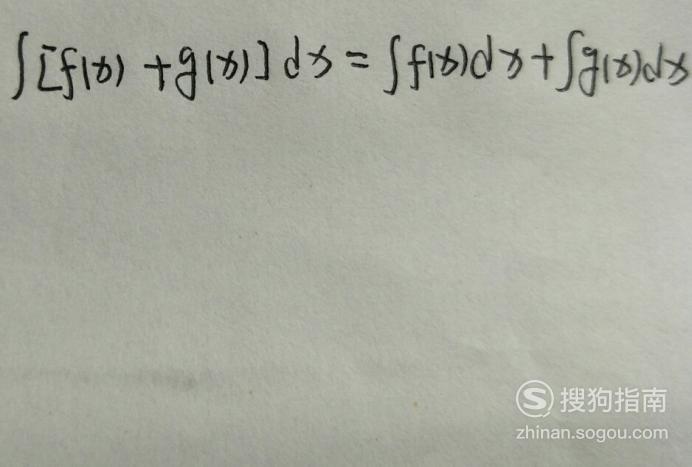 ∫[f(x) + g(x)] dx = ∫f(x)dx + ∫g(x)dx
搜狗指南
zhinan.sogou.com